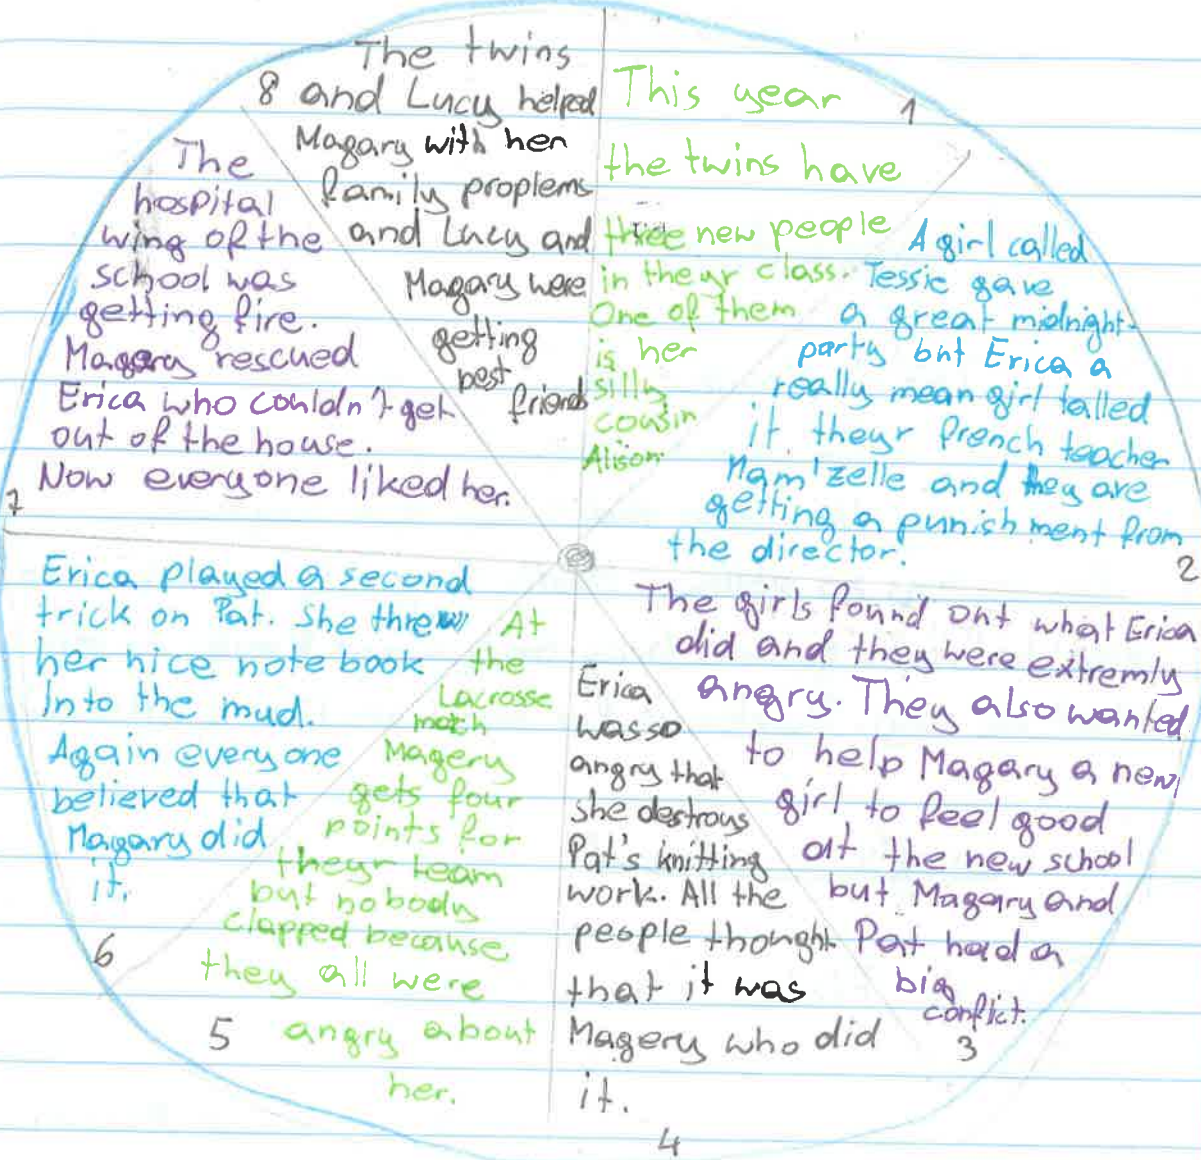 1
This year
the twins have
three new people
in theyr class.
One of them
is her
silly
cousin
Alison.
2
A girl called
Tessie gave
a great midnight-
party but Erica a
really mean girl talled
it theyr french teacher
Mam'zelle and they are
getting a punishment from
the director.
3
The girls found out what Erica
did and they were extremly
angry. They also wanted
to help Magary a new
girl to feel good
at the new school
but Magary and
Pat had a
big
conflict.
4
Erica
was so
angry that
she destroys
Pat's knitting
work. All the
people thought
that it was
Magery who did
it.
5
At
the
Lacrosse
match
Magery
gets four
points for
theyr team
but nobody
clapped because
they all were
angry about
her.
6
Erica played a second
trick on Pat. She threw
her nice notebook
Into the mud.
Again everyone
believed that
Magary did
it.
7
The
hospital
wing of the
school was
getting fire.
Magary rescued
Erica who couldn't get
out of the house.
Now everyone liked her.
8
The twins
and Lucy helped
Magary with her
family proplems
and Lucy and
Magary were
getting
best
friends